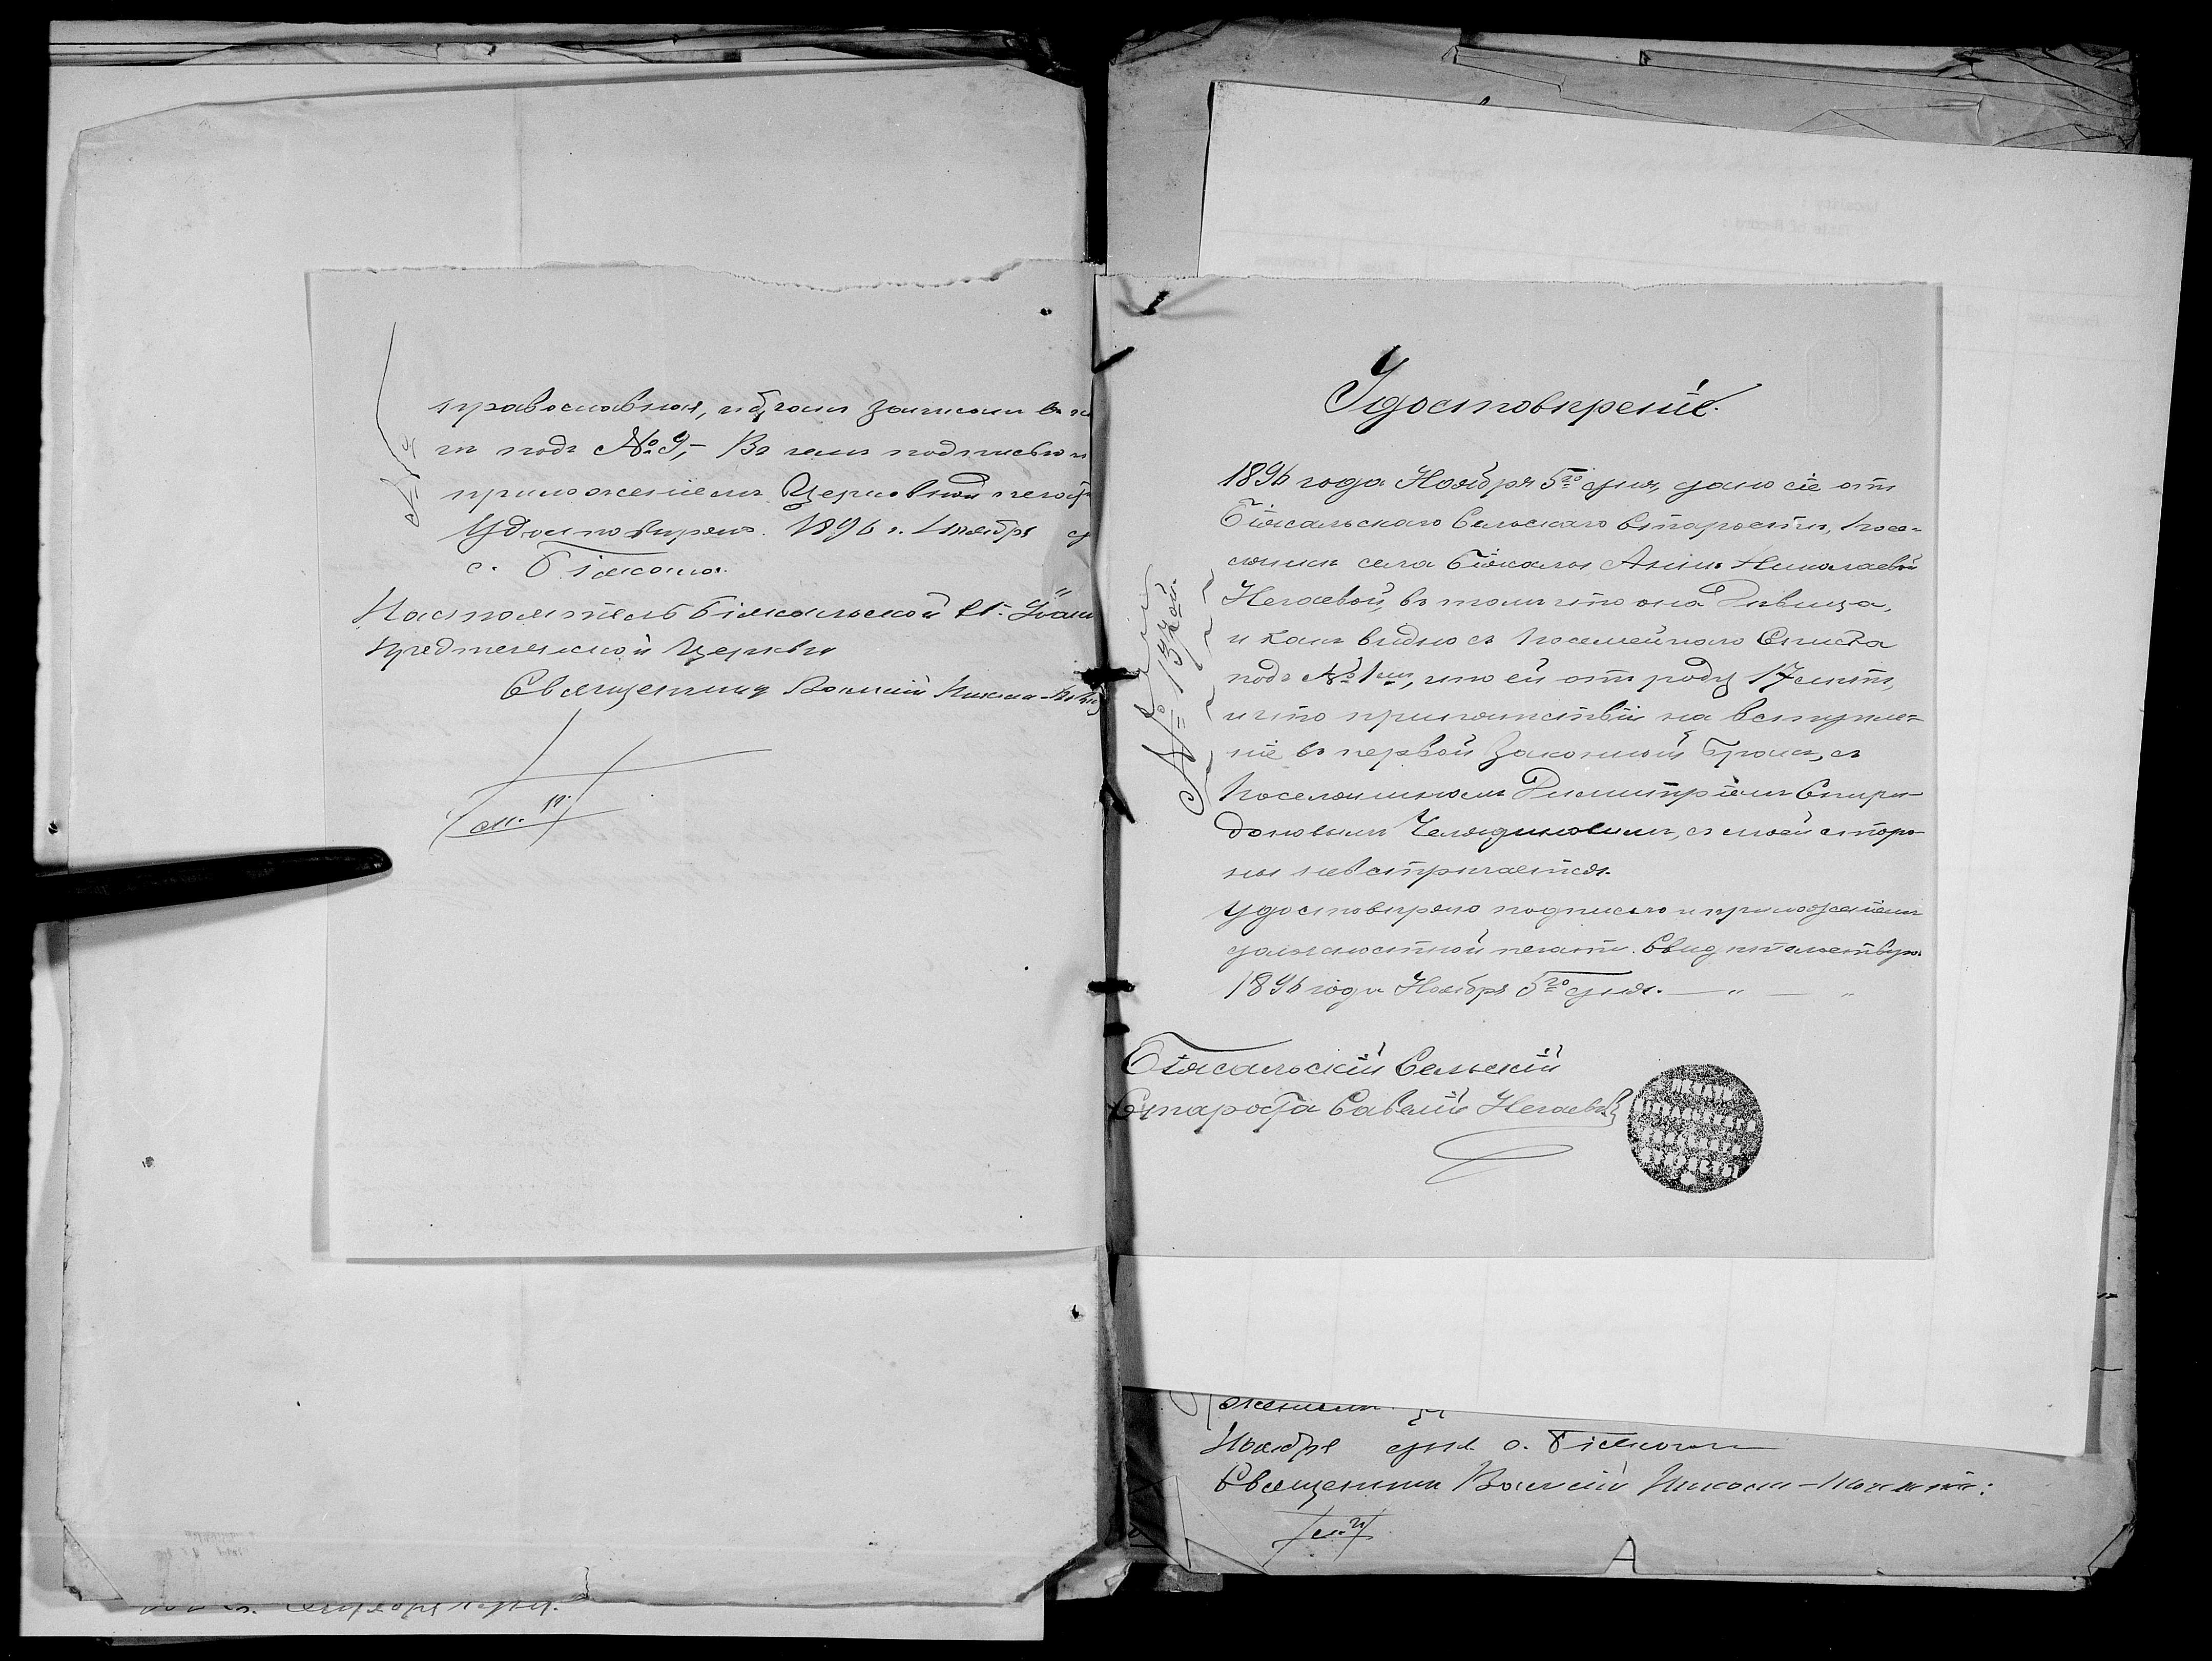 православная, и бракъ записанъ въ
подъ № 9,- Въ чемъ подписью и
приложеніемъ Церковной печати
Удостовѣрено. 1896 г. Ноября
с. Біясала.
Настоятель Біясальской Іоанно
Предтеченской Церкви
Священникъ Василій
м. п.
Удостовѣреніе.
1896 года Ноября 5го дня, дано сіе отъ
Біясальскаго Сельскаго Старосты, посе=
лянкѣ села Біясалы, Аннѣ Николаевой
Негаевой, въ томъ что она Дѣвица,
и какъ видно съ посемейнаго Списка
подъ № 1мъ, что ей отъ роду 17 лѣтъ,
и что препятствій на вступле=
ніе въ первой законный бракъ, съ
Поселяниномъ Димитріемъ Спири-
доновымъ Челядиновымъ, съ моей сторо-
ны невстрѣчается.
Удостовѣрено подписью и приложеніемъ
должностной печати.
1896 года Ноября 5го дня. — " — "
№ 137
Біясальскій Сельскій
Староста Савелій Негаевъ
ПЕЧАТЬ
БІЯСАЛЬСКАГО
СЕЛЬСКАГО
СТАРОСТЫ
Ноября дня с. Біясала
Священникъ Василій
м. п.